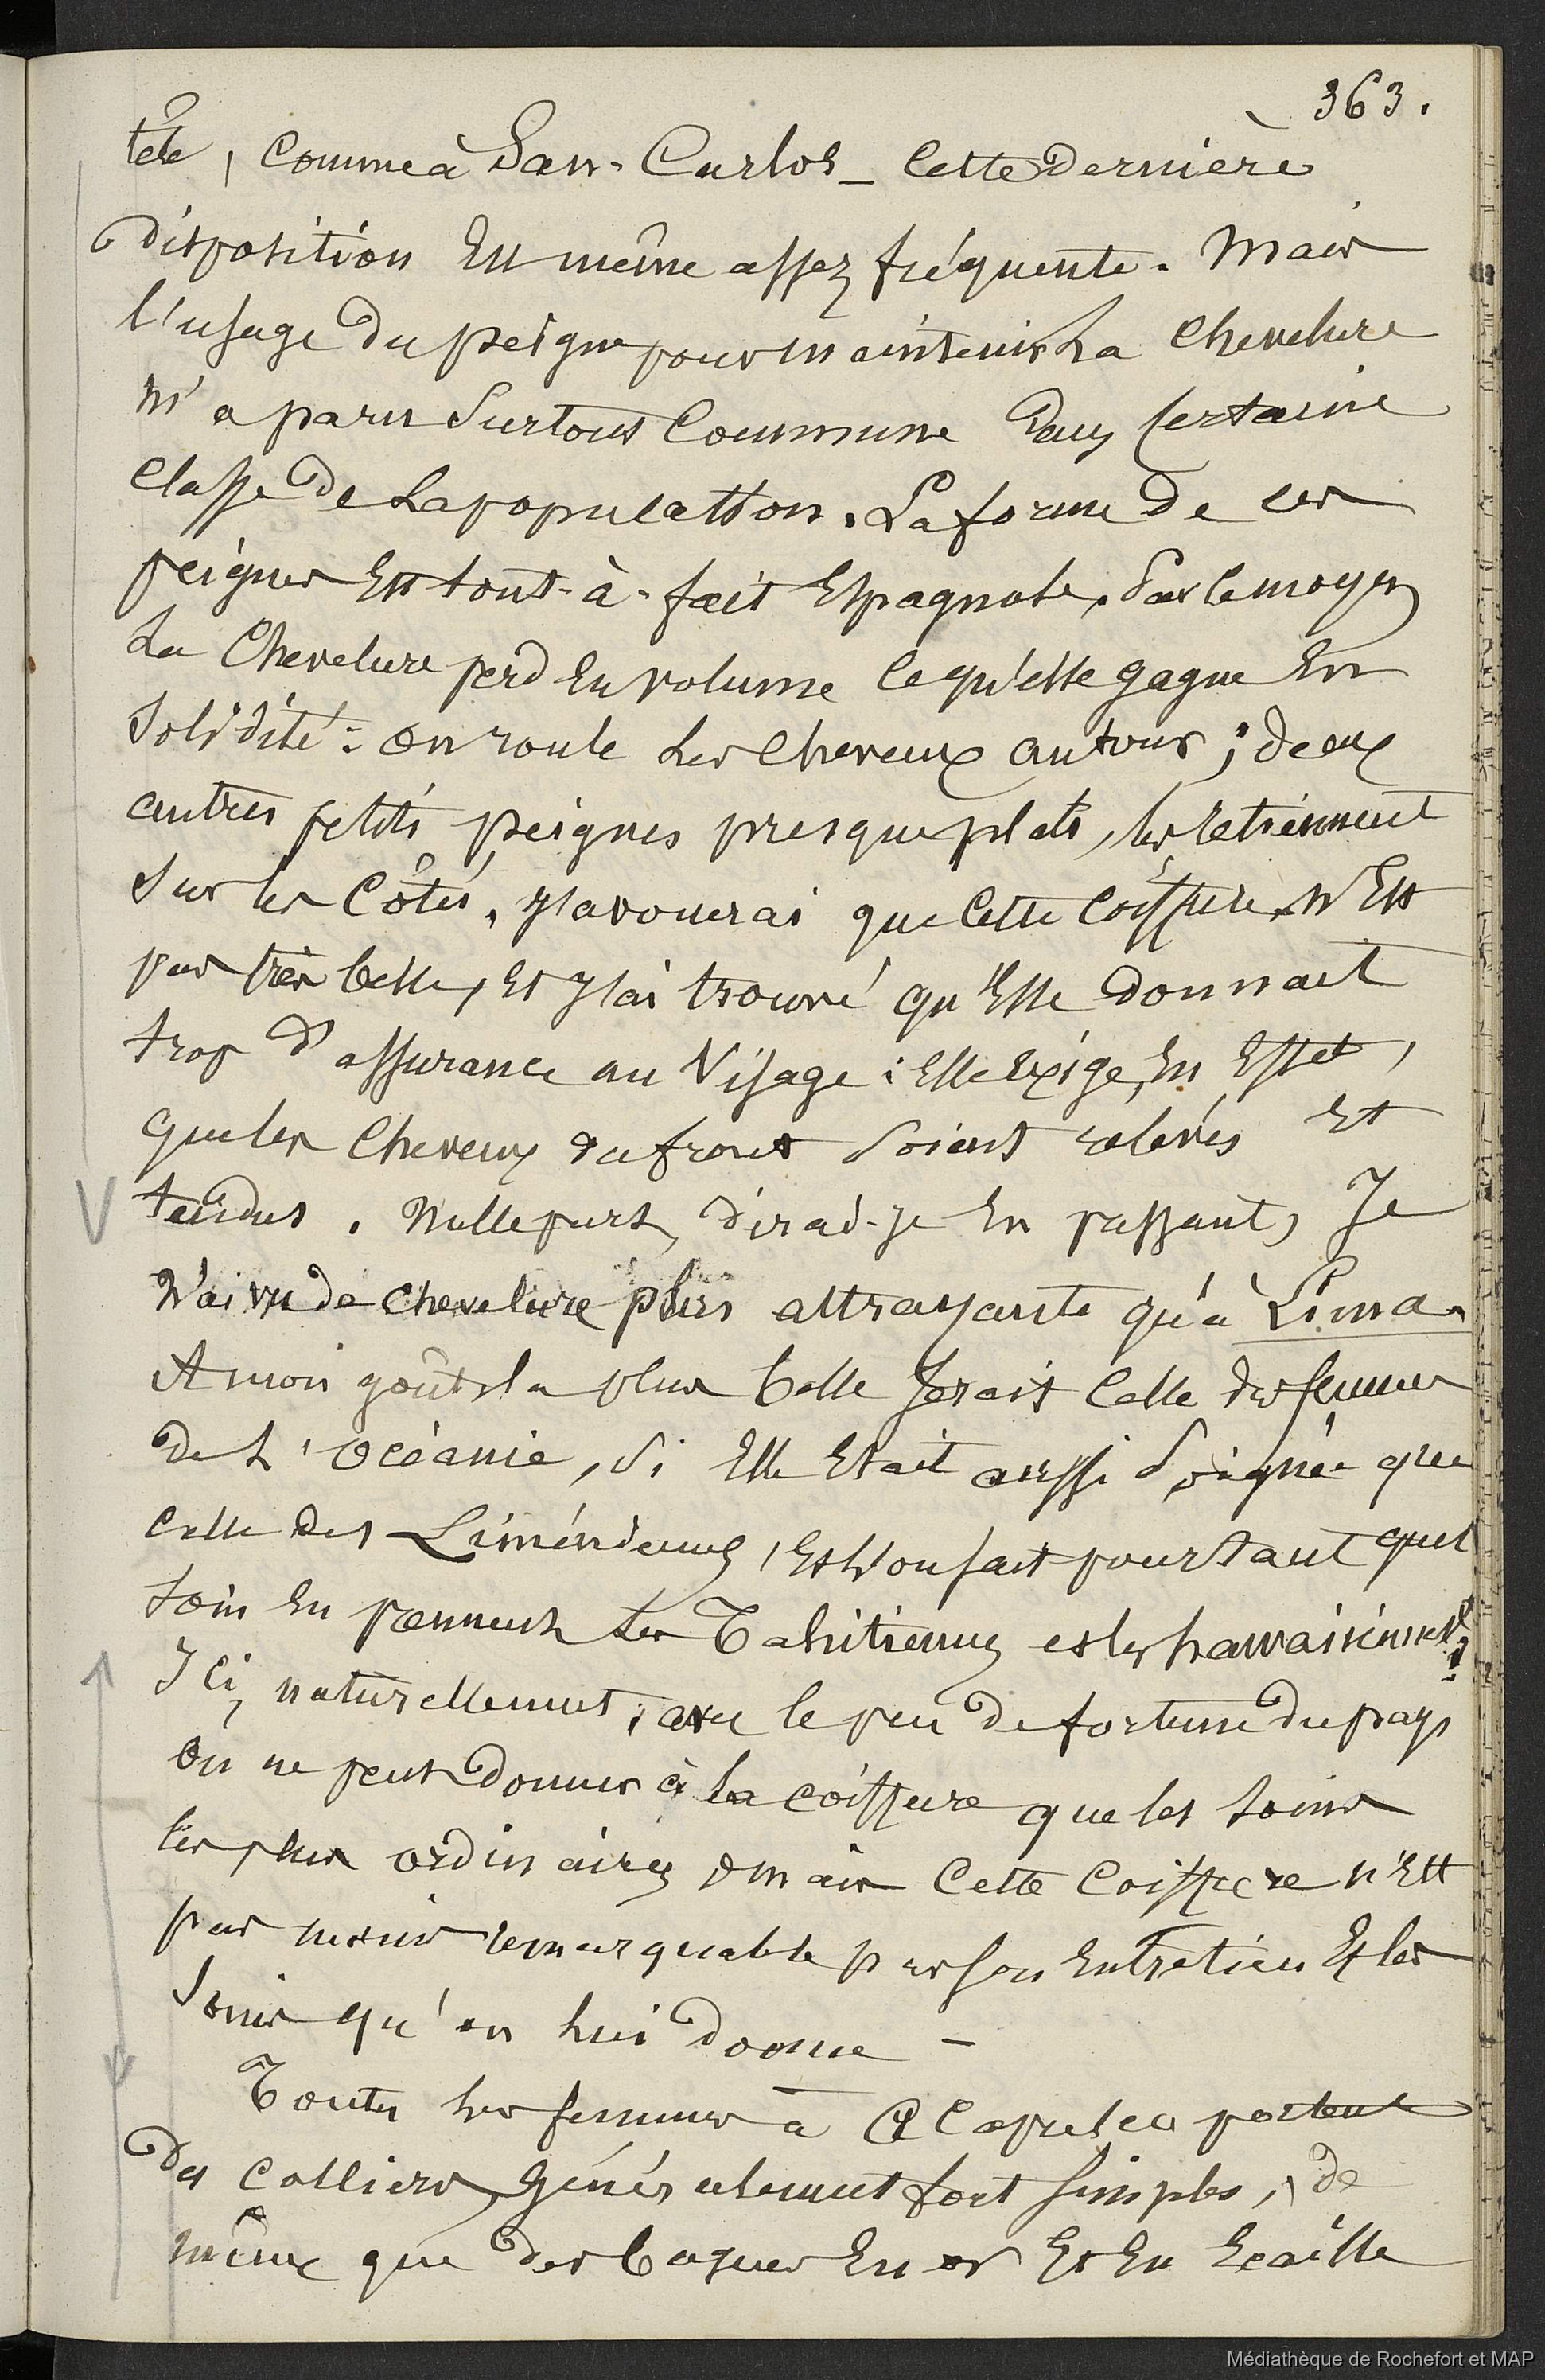 363.
tête, comme à San-Carlos _ Cette dernière
disposition Est même assez fréquente. Mais
l'usage du peigne pour maintenir La Chevelure
m'a paru Surtout Commune Dans Certaine
Classe de La population. La forme de ces
peignes Est tout-à-fait Espagnole. Par le moyen
La Chevelure perd En volume Ce qu'elle gagne En
Solidité: on roule Les Cheveux autour; deux
autres petits peignes presque plats, les retiennent
Sur les Côtés. J'avouerai que Cette Coiffure N'Est
pas très belle, Et J'ai trouvé qu'Elle donnait
trop d'assurance au Visage: Elle Exige, En Effet,
que les Cheveux du front Soient relevés Et
tendus. Nulle part, dirai-je En passant, Je
N'ai vu de chevelure plus attrayante qu'à Lima.
A mon goût la plus belle Serait Celle des femmes
de L'Océanie, Si Elle Etait aussi Soignée que
celle des Liméniennes, Et L'on sait pourtant quel
Soin En prennent Les Tahitiennes et les hawaïennes!
Ici, naturellement, avec le peu de fortune du pays
on ne peut donner à la coiffure que les Soins
les plus ordinaires, mais Cette Coiffure n'Est
pas moins remarquable par son Entretien Et les
Soins qu'on lui donne –
Toutes les femmes à Acapulco portent
des Colliers, Généralement fort Simples, de
même que des bagues En or Et En Ecaille
Médiathèque de Rochefort et MAP